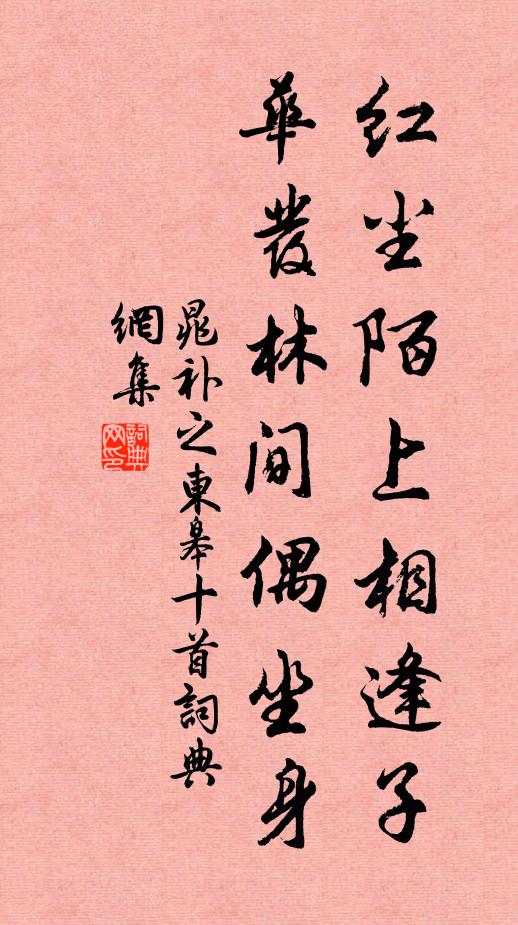 红尘陌上相逢子
華發林间偶坐身
晁补之東皋十首詞典
網集
詞典网印